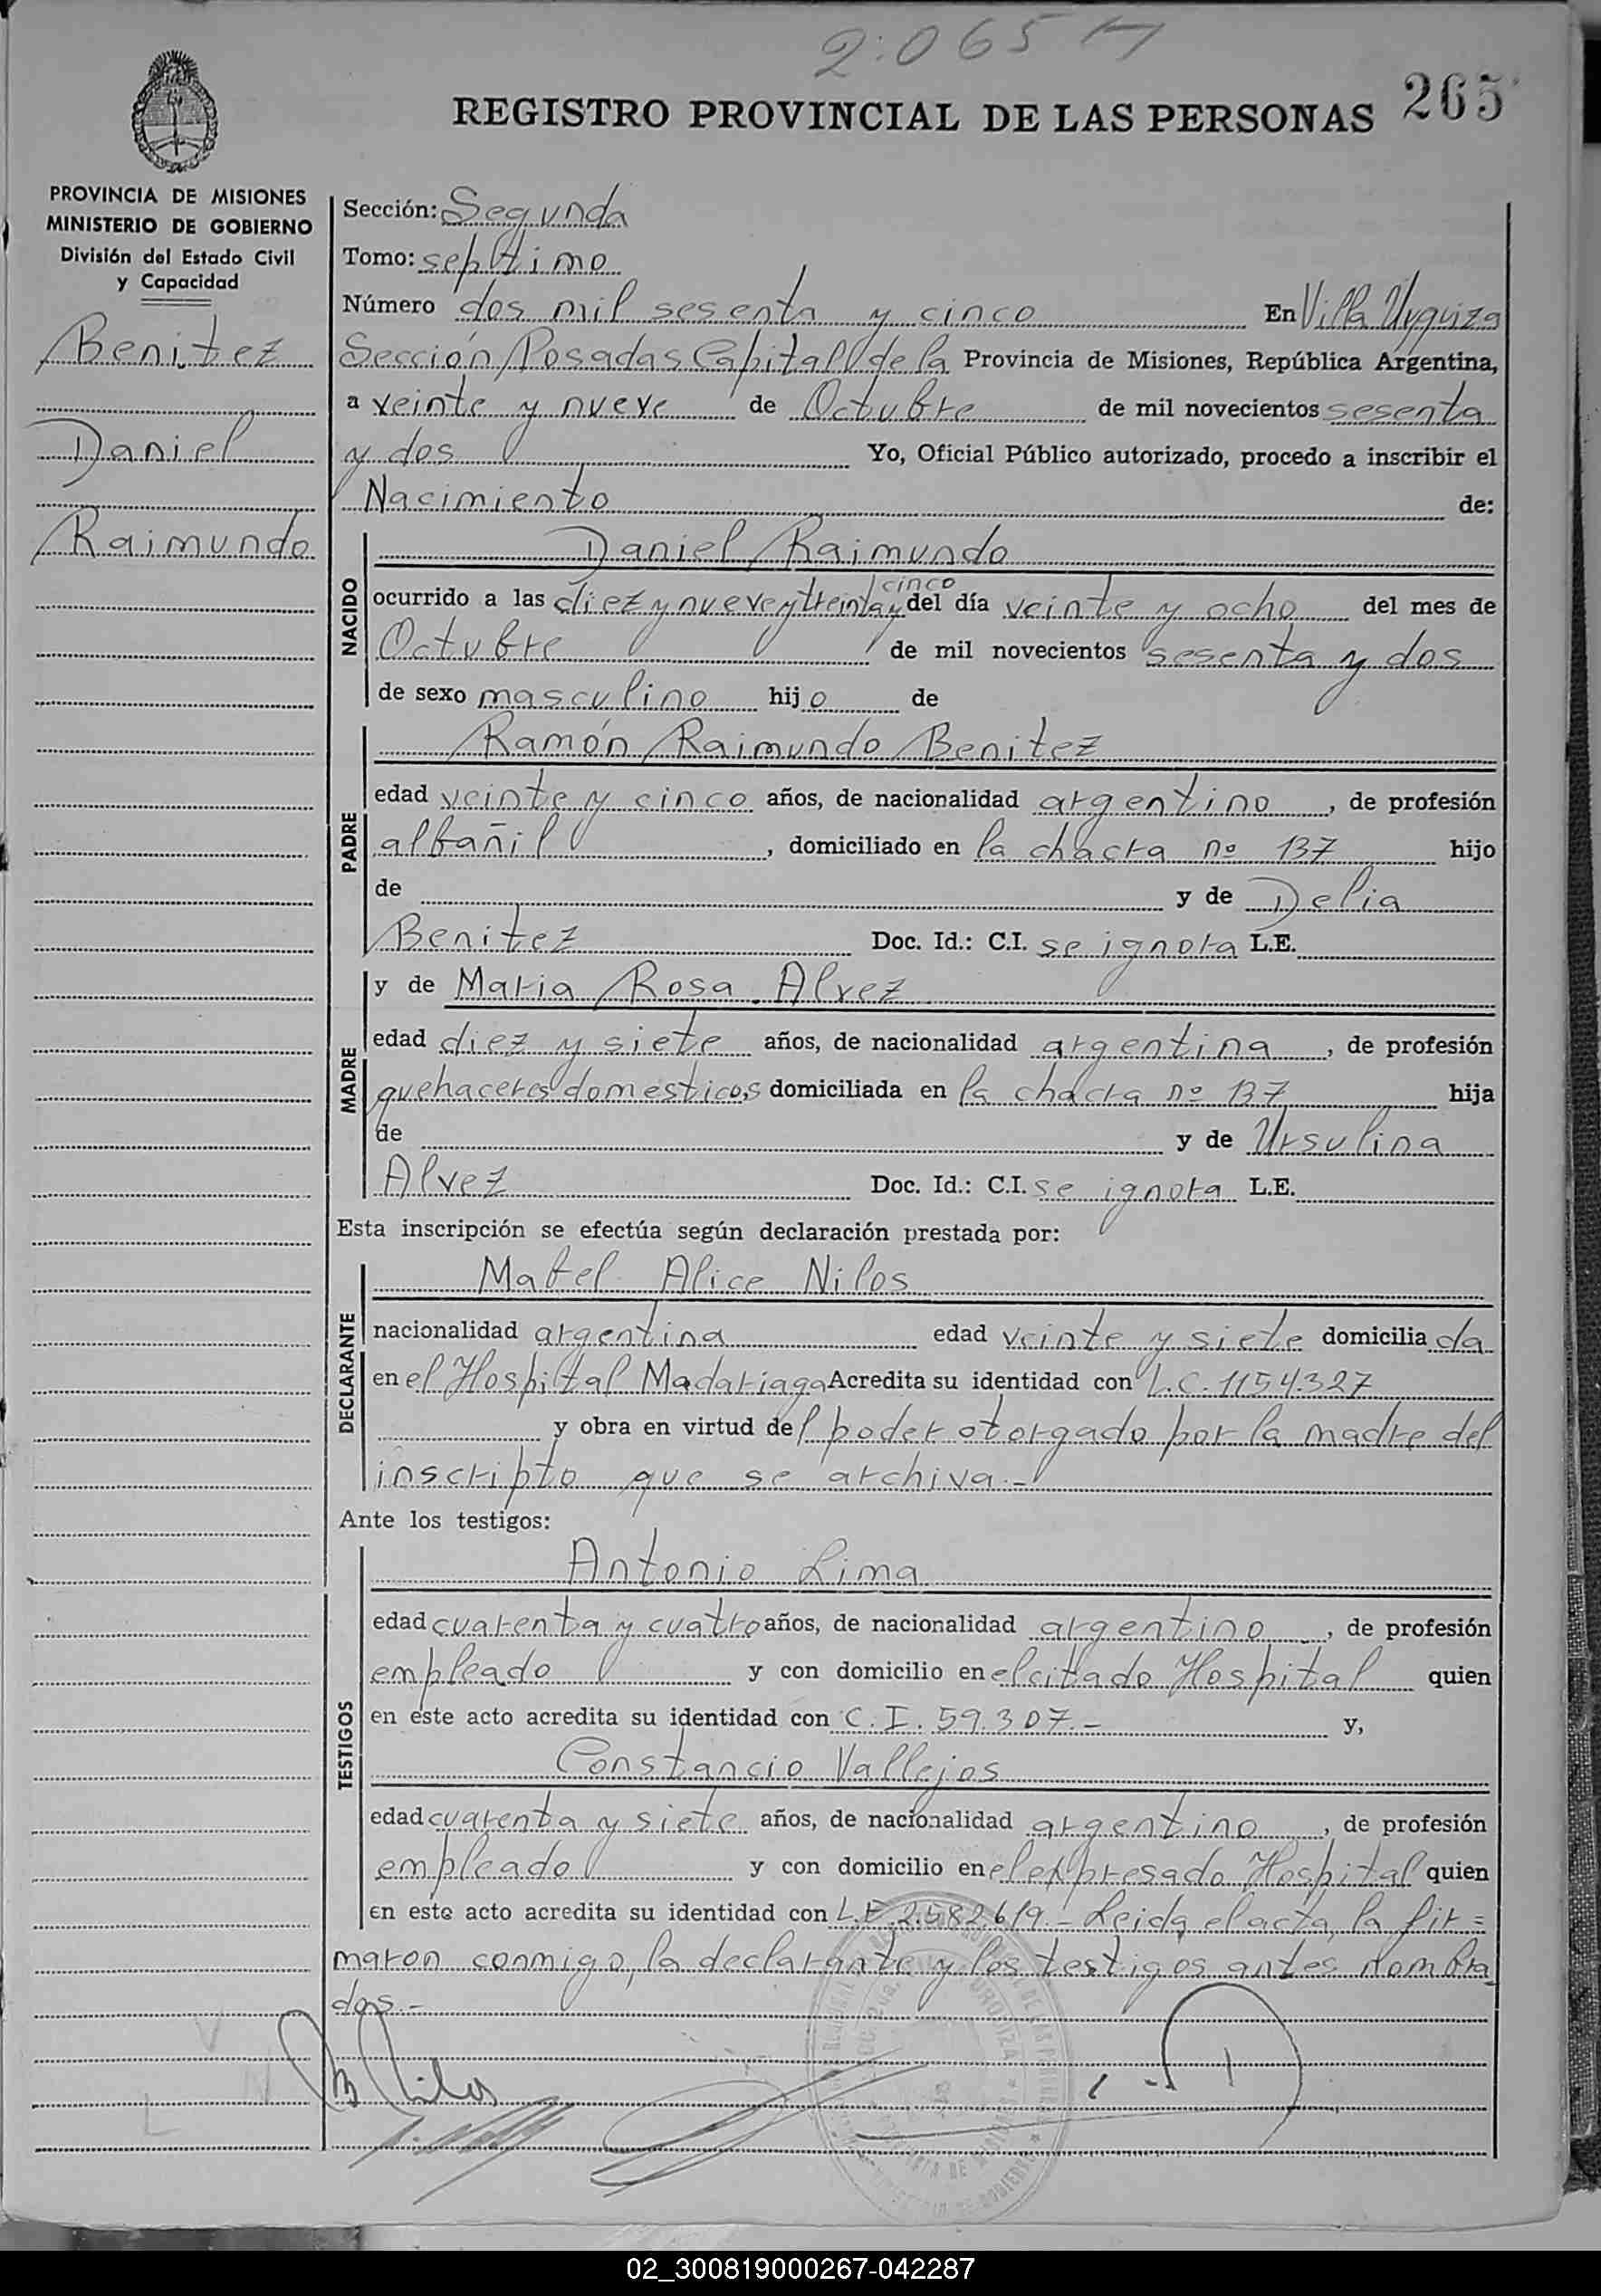 2.065
265
REGISTRO PROVINCIAL DE LAS PERSONAS
PROVINCIA DE MISIONES
MINISTERIO DE GOBIERNO
División del Estado Civil
y Capacidad
Benitez
Daniel
Raimundo
Sección: Segunda
Tomo: septimo
Número dos mil sesenta y cinco En Villa Urquiza
Sección Posadas Capital de la Provincia de Misiones, República Argentina,
a veinte y nueve de Octubre de mil novecientos sesenta
y dos Yo, Oficial Público autorizado, procedo a inscribir el
Nacimiento de:
NACIDO
Daniel Raimundo
ocurrido a las diez y nueve y treinta y cinco del día veinte y ocho del mes de
Octubre de mil novecientos sesenta y dos
de sexo masculino hijo de
PADRE
Ramón Raimundo Benitez
edad veinte y cinco años, de nacionalidad argentino, de profesión
albañil, domiciliado en la chacra nº 137 hijo
de y de Delia
Benitez Doc. Id.: C.I. se ignora L.E.
MADRE
y de Maria Rosa Alvez
edad diez y siete años, de nacionalidad argentina, de profesión
quehaceres domesticos domiciliada en la chacra nº 137 hija
de y de Ursulina
Alvez Doc. Id.: C.I. se ignora L.E.
Esta inscripción se efectúa según declaración prestada por:
DECLARANTE
Mabel Alice Nilos
nacionalidad argentina edad veinte y siete domiciliada
en el Hospital Madariaga Acredita su identidad con L.C. 1154.327
y obra en virtud del poder otorgado por la madre del
inscripto que se archiva.-
Ante los testigos:
TESTIGOS
Antonio Lima
edad cuarenta y cuatro años, de nacionalidad argentino, de profesión
empleado y con domicilio en el citado Hospital quien
en este acto acredita su identidad con C.I. 59.307.- y,
Constancio Vallejos
edad cuarenta y siete años, de nacionalidad argentino, de profesión
empleado y con domicilio en el expresado Hospital quien
en este acto acredita su identidad con L.E. 2.582.619.- Leida el acta, la fir=
maron conmigo, la declarante y los testigos antes nombra
dos.-
02_300819000267-042287